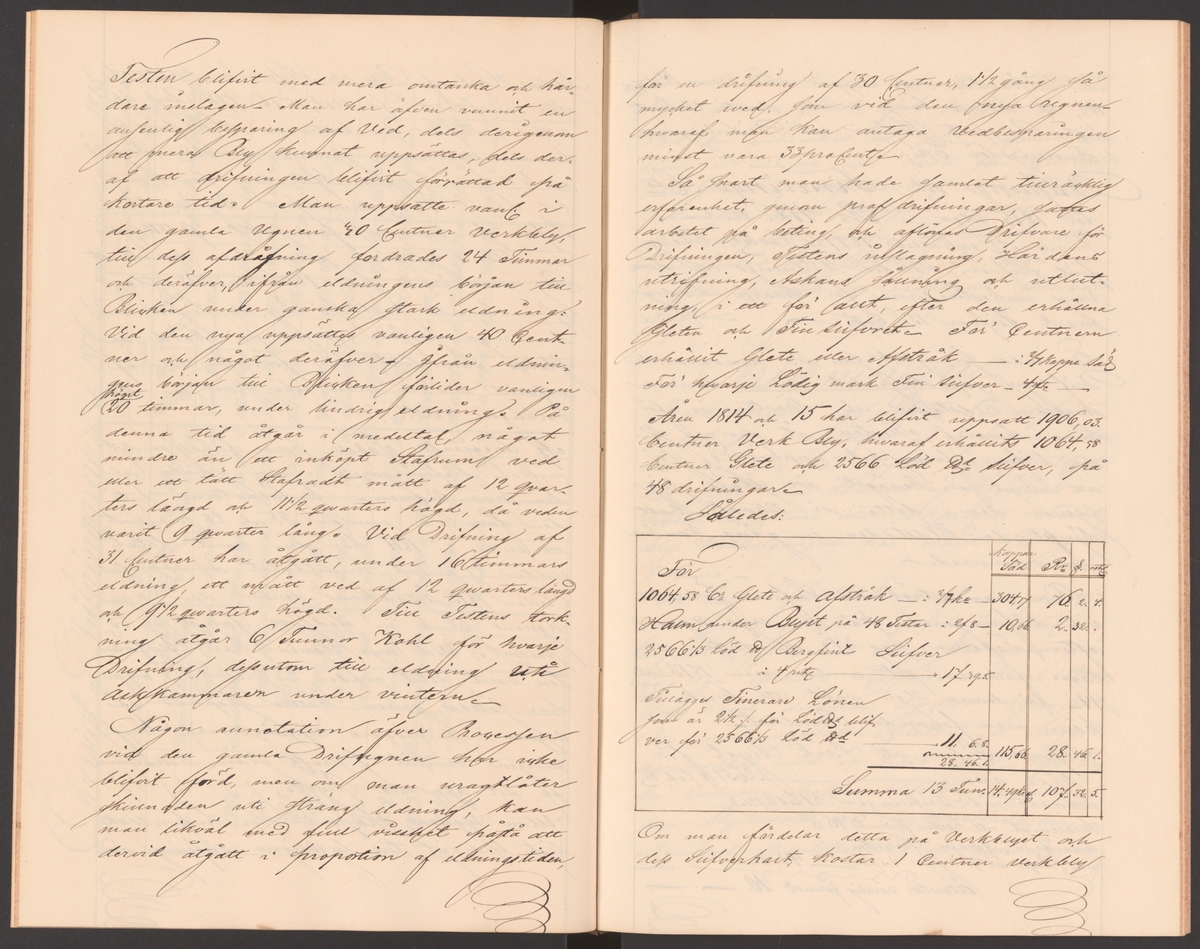 Testen blifvit med mera omtanka och hår-
dare inslagen. Man har äfven vunnit en
ansenlig besparing af Ved, dels derigenom
att mera Bly kunnat uppsättas, dels der-
af att drifningen blifvit förrättad på
kortare tid. Man uppsatte vanl i
den gamla Ugnen 30 Centner Verkbly,
till dess afdrifning fordrades 24 Timmar
och deröfver, ifrån eldningens början till
Blicken under ganska stark eldning.
Vid den nya uppsättes vanligen 40 Cent-
ner och något deröfver. Ifrån eldnin-
gens början till Blicken förlider vanligen
högst
20 timmar, under lindrig eldning. På
denna tid åtgår i medeltal, något
mindre än ett inköpt Stafrum ved
eller ett tätt Stafradt mått af 12 qvar-
ters längd och 11 1/2 qwarters högd, då veden
varit 9 qwarter lång. Vid Drifning af
31 Centner har åtgått, under 16 timmars
eldning, ett mått ved af 12 qwarters längd
och 9 1/2 qwarters högd. Till Testens tork-
ning åtgår 6 Tunnor Kohl för hvarje
Drifning, dessutom till eldning utå
Askkammaren under vintern.
Någon annotation öfver Processen
vid den gamla Drifugnen har icke
blifvit förd, men om man
skillnaden uti sträng eldning, kan
man likväl med full visshet påstå att
dervid åtgått i proportion af eldningstiden,
för en drifning af 30 Centner, 1 1/2 gång så
mycket ved, som vid den nya Ugnen
hvaraf man kan antaga Vedbesparingen
minst vara 33 proCent.
Så snart man hade samlat tillräcklig
erfarenhet, genom prof drifningar, sattes
arbetet på beting, och aflönas Drifvare för
Drifningen, Testens inslagning, Härdens
utrifning, Askans och utlut-
ning, i ett för allt, efter den erhållna
Gleten och Fin Silfvret. För Centnern
erhållit Glete eller Afstråk — : 2/7 Kappe Säd
För hvarje Lödig mark Fin Silfver — 4
Åren 1814 och 15 har blifvit uppsatt 1906,03.
Centner Verk Bly, hvaraf erhållits 1064,58
Centner Glete och 2566 Löd Silfver, på
48 drifningar.
Således:
Kappar
Säd
För
1064,58 Glete och Afstråk — : 2/7 — 304,17 76. 2. 4.
Halm under Blyet på 48 Testar — 10,66 2. 32.
2566 1/3 Löd Bergfint Silfver
à 4 — 17. 39.5
Tillägges Finerare Lönen
som är 2 1/2 för Löd blif
ver för 2566 1/3 Löd — 11. 6. 8.
28. 46. 1. 115,66 28. 46. 1.
Summa 13 Tun. 107. 32. 5.
Om man fördelar detta på Verkblyet och
dess Silfverhalt, kostar 1 Centner Verkbly